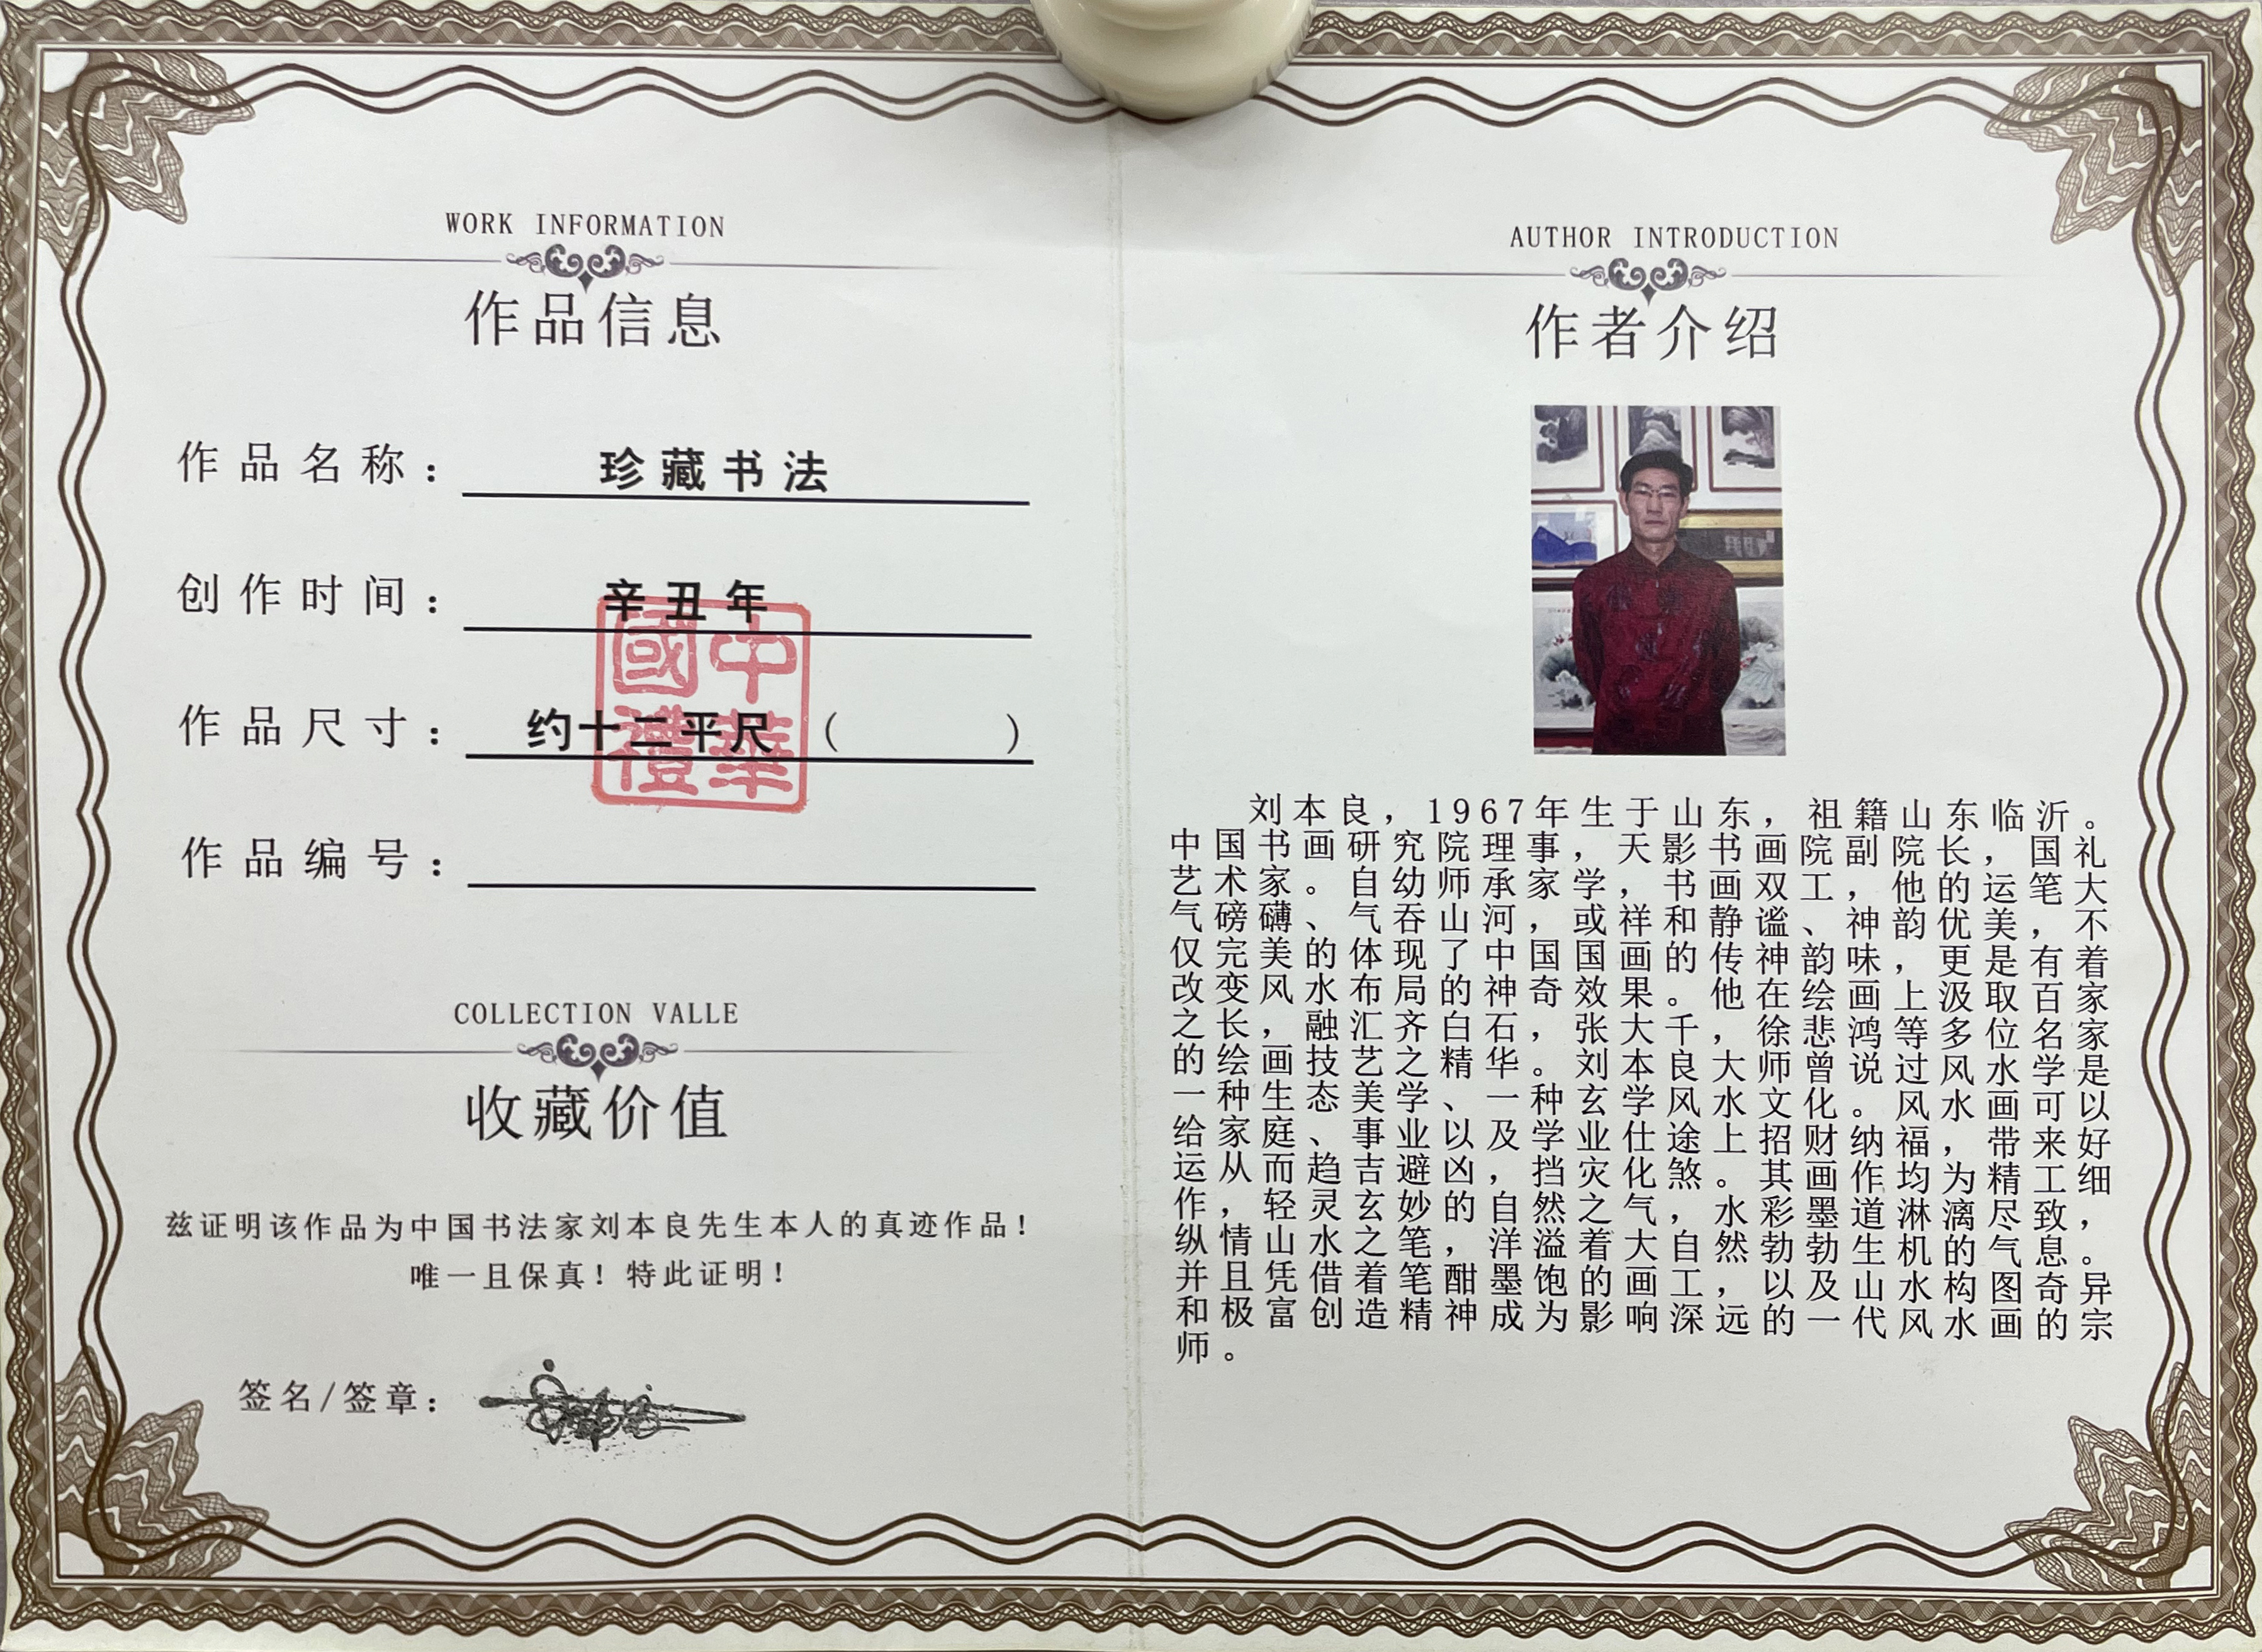 WORK INFORMATION
作品信息
作品名称：珍藏书法
创作时间：辛丑年
作品尺寸：约十二平尺（ ）
國中
禮華
作品编号：
COLLECTION VALLE
收藏价值
兹证明该作品为中国书法家刘本良先生本人的真迹作品！
唯一且保真！特此证明！
签名/签章：
AUTHOR INTRODUCTION
作者介绍
刘本良，1967年生于山东，祖籍山东临沂。
中国书画研究院理事，天影书画院副院长，国礼
艺术家。自幼师承家学，书画双工，他的运笔大
气磅礴、气吞山河，或祥和静谧、神韵优美，不
仅完美的体现了中国国画的传神韵味，更是有着
改变风水布局的神奇效果。他在绘画上汲取百家
之长，融汇齐白石，张大千，徐悲鸿等多位名家
的绘画技艺之精华。刘本良大师曾说过风水学是
一种生态美学、一种玄学风水文化。风水画可以
给家庭、事业以及学业仕途上招财纳福，带来好
运从而趋吉避凶，挡灾化煞。其画作均为精工细
作，轻灵玄妙的自然之气，水彩墨道淋漓尽致，
纵情山水之笔，洋溢着大自然勃勃生机的气息。
并且凭借着笔酣墨饱的画工，以及山水构图奇异
和极富创造精神成为影响深远的一代风水画的宗
师。